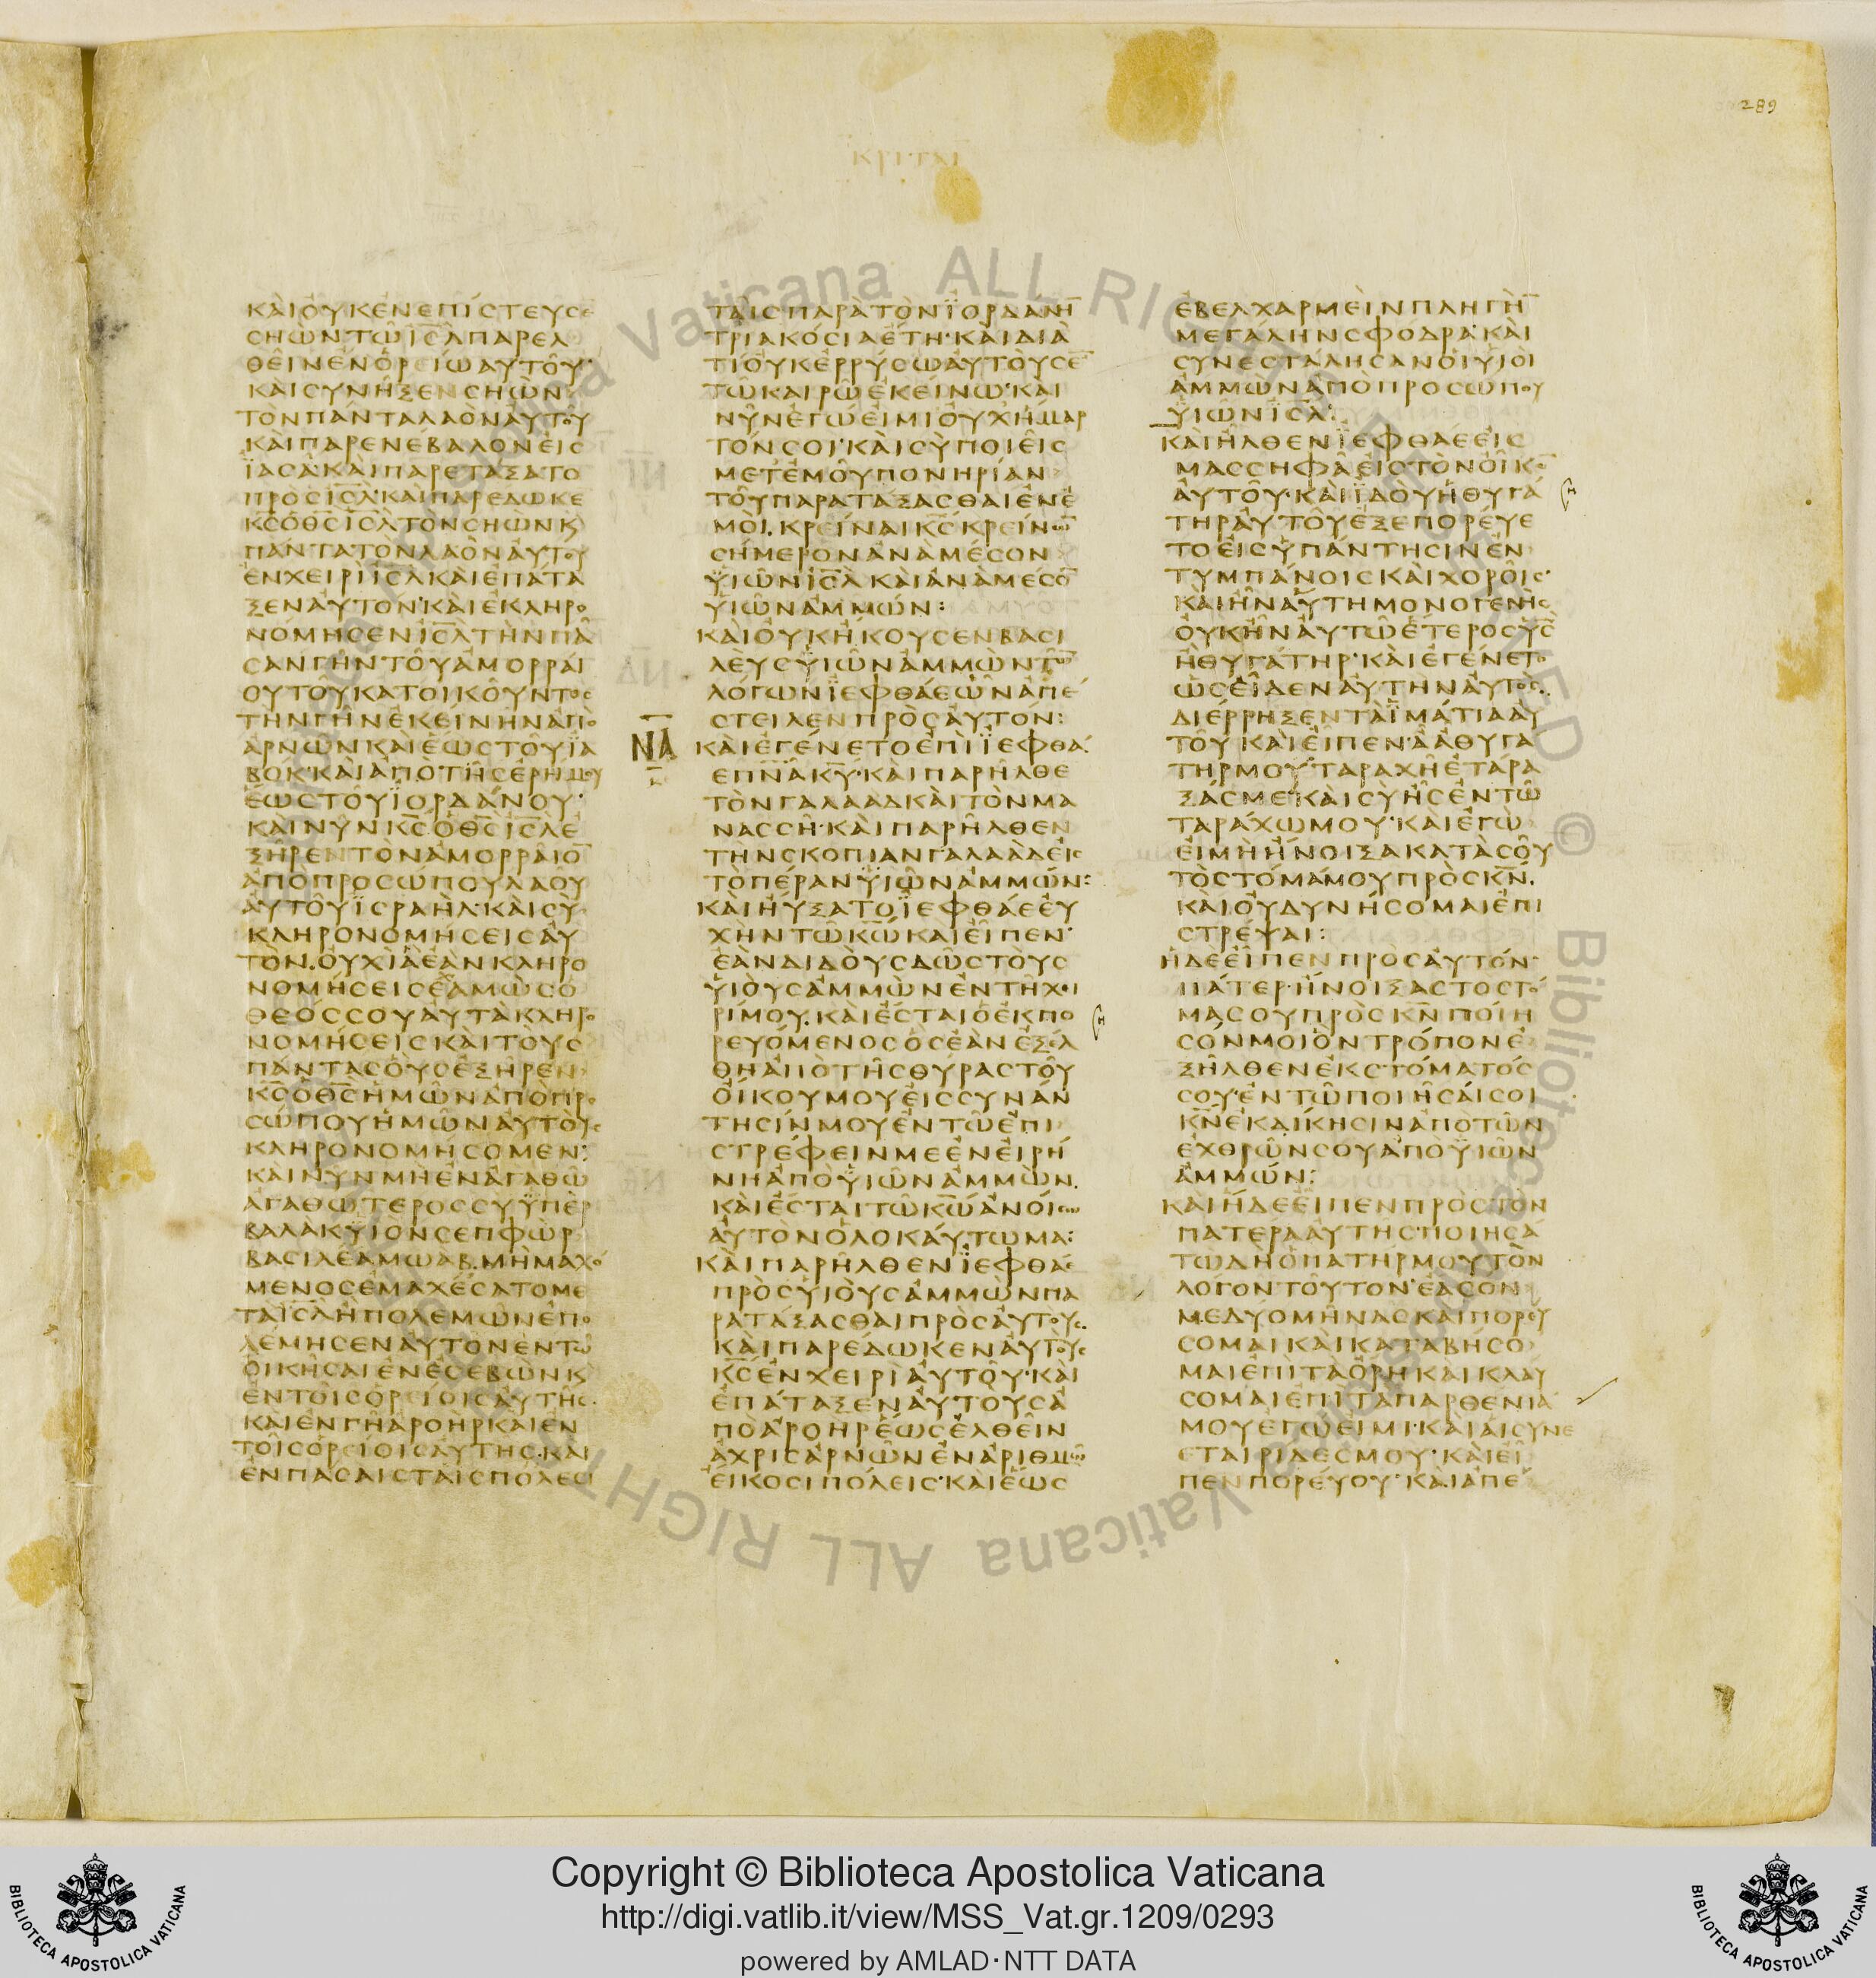 289
ΚΡΙΤΑΙ
ΚΑΙΟΥΚΕΝΕΠΙΣΤΕΥΣΕ
ΣΗΩΝΤΩΙΣΛΠΑΡΕΛ
ΘΕΙΝΕΝΟΡΕΙΩΑΥΤΟΥ
ΚΑΙΣΥΝΗΞΕΝΣΗΩΝ
ΤΟΝΠΑΝΤΑΛΑΟΝΑΥΤΟΥ
ΚΑΙΠΑΡΕΝΕΒΑΛΟΝΕΙΣ
ΪΑΣΑΚΑΙΠΑΡΕΤΑΞΑΤΟ
ΠΡΟΣΙΣΛΚΑΙΠΑΡΕΔΩΚΕ
ΚΣΟΘΣΙΣΛΤΟΝΣΗΩΝΚ
ΠΑΝΤΑΤΟΝΛΑΟΝΑΥΤΟΥ
ΕΝΧΕΙΡΙΙΣΛΚΑΙΕΠΑΤΑ
ΞΕΝΑΥΤΟΝΚΑΙΕΚΛΗΡΟ
ΝΟΜΗΣΕΝΙΣΛΤΗΝΠΑ
ΣΑΝΓΗΝΤΟΥΑΜΟΡΡΑΙ
ΟΥΤΟΥΚΑΤΟΙΚΟΥΝΤΟΣ
ΤΗΝΓΗΝΕΚΕΙΝΗΝΑΠΟ
ΑΡΝΩΝΚΑΙΕΩΣΤΟΥΪΑ
ΒΟΚ·ΚΑΙΑΠΟΤΗΣΕΡΗΜΟΥ
ΕΩΣΤΟΥΪΟΡΔΑΝΟΥ·
ΚΑΙΝΥΝΚΣΟΘΣΙΣΛΕ
ΞΗΡΕΝΤΟΝΑΜΟΡΡΑΙΟ
ΑΠΟΠΡΟΣΩΠΟΥΛΑΟΥ
ΑΥΤΟΥΪΣΡΑΗΛ·ΚΑΙΣΥ
ΚΛΗΡΟΝΟΜΗΣΕΙΣΑΥ
ΤΟΝ.ΟΥΧΙΑΕΑΝΚΛΗΡΟ
ΝΟΜΗΣΕΙΣΕΑΜΩΣΟ
ΘΕΟΣΣΟΥΑΥΤΑΚΛΗΡΟ
ΝΟΜΗΣΕΙΣΚΑΙΤΟΥΣ
ΠΑΝΤΑΣΟΥΣΕΞΗΡΕΝ
ΚΣΟΘΣΗΜΩΝΑΠΟΠΡΟ
ΣΩΠΟΥΗΜΩΝΑΥΤΟΥΣ
ΚΛΗΡΟΝΟΜΗΣΟΜΕΝ:
ΚΑΙΝΥΝΜΗΕΝΑΓΑΘΩ
ΑΓΑΘΩΤΕΡΟΣΣΥΫΠΕΡ
ΒΑΛΑΚΥΙΟΝΣΕΠΦΩΡ
ΒΑΣΙΛΕΑΜΩΑΒ.ΜΗΜΑΧΟ
ΜΕΝΟΣΕΜΑΧΕΣΑΤΟΜΕ
ΤΑΙΣΛΗΠΟΛΕΜΩΝΕΠΟ
ΛΕΜΗΣΕΝΑΥΤΟΝΕΝΤΩ
ΟΙΚΗΣΑΙΕΝΕΣΕΒΩΝΚ
ΕΝΤΟΙΣΟΡΕΙΟΙΣΑΥΤΗΣ·
ΚΑΙΕΝΓΗΑΡΟΗΡΚΑΙΕΝ
ΤΟΙΣΟΡΕΙΟΙΣΑΥΤΗΣ·ΚΑΙ
ΕΝΠΑΣΑΙΣΤΑΙΣΠΟΛΕΣΙ
ΤΑΙΣΠΑΡΑΤΟΝΪΟΡΔΑΝΗ
ΤΡΙΑΚΟΣΙΑΕΤΗ·ΚΑΙΔΙΑ
ΤΙΟΥΚΕΡΡΥΣΩΑΥΤΟΥΣΕ
ΤΩΚΑΙΡΩΕΚΕΙΝΩ·ΚΑΙ
ΝΥΝΕΓΩΕΙΜΙΟΥΧΗΜΑΡ
ΤΟΝΣΟΙ·ΚΑΙΣΥΠΟΙΕΙΣ
ΜΕΤΕΜΟΥΠΟΝΗΡΙΑΝ
ΤΟΥΠΑΡΑΤΑΞΑΣΘΑΙΕΝΕ
ΜΟΙ.ΚΡΕΙΝΑΙΚΣΚΡΕΙΝΩ
ΣΗΜΕΡΟΝΑΝΑΜΕΣΟΝ
ΫΙΩΝΙΣΛΚΑΙΑΝΑΜΕΣΟ
ΥΙΩΝΑΜΜΩΝ:
ΚΑΙΟΥΚΗΚΟΥΣΕΝΒΑΣΙ
ΛΕΥΣΫΙΩΝΑΜΜΩΝΤΩ
ΛΟΓΩΝΪΕΦΘΑΕΩΝΑΠΕ
ΣΤΕΙΛΕΝΠΡΟΣΑΥΤΟΝ:
ΝΑ
ΚΑΙΕΓΕΝΕΤΟΕΠΙΪΕΦΘΑ
ΕΠΝΑΚΥ·ΚΑΙΠΑΡΗΛΘΕ
ΤΟΝΓΑΛΑΑΔΚΑΙΤΟΝΜΑ
ΝΑΣΣΗ·ΚΑΙΠΑΡΗΛΘΕΝ
ΤΗΝΣΚΟΠΙΑΝΓΑΛΑΑΔΕΙΣ
ΤΟΠΕΡΑΝΫΙΩΝΑΜΜΩΝ:
ΚΑΙΗΥΞΑΤΟΪΕΦΘΑΕΕΥ
ΧΗΝΤΩΚΩΚΑΙΕΙΠΕΝ·
ΕΑΝΔΙΔΟΥΣΔΩΣΤΟΥΣ
ΫΙΟΥΣΑΜΜΩΝΕΝΤΗΧΕΙ
ΡΙΜΟΥ.ΚΑΙΕΣΤΑΙΟΕΚΠΟ
ΡΕΥΟΜΕΝΟΣΟΣΕΑΝΕΞΕΛ
ΘΗΑΠΟΤΗΣΘΥΡΑΣΤΟΥ
ΟΙΚΟΥΜΟΥΕΙΣΣΥΝΑΝ
ΤΗΣΙΝΜΟΥΕΝΤΩΕΠΙ
ΣΤΡΕΦΕΙΝΜΕΕΝΕΙΡΗ
ΝΗΑΠΟΫΙΩΝΑΜΜΩΝ.
ΚΑΙΕΣΤΑΙΤΩΚΩΑΝΟΙΣΩ
ΑΥΤΟΝΟΛΟΚΑΥΤΩΜΑ:
ΚΑΙΠΑΡΗΛΘΕΝΪΕΦΘΑΕ
ΠΡΟΣΥΙΟΥΣΑΜΜΩΝΠΑ
ΡΑΤΑΞΑΣΘΑΙΠΡΟΣΑΥΤΟΥΣ.
ΚΑΙΠΑΡΕΔΩΚΕΝΑΥΤΟΥΣ
ΚΣΕΝΧΕΙΡΙΑΥΤΟΥ·ΚΑΙ
ΕΠΑΤΑΞΕΝΑΥΤΟΥΣΑ
ΠΟΑΡΟΗΡΕΩΣΕΛΘΕΙΝ
ΑΧΡΙΣΑΡΝΩΝΕΝΑΡΙΘΜΩ
ΕΙΚΟΣΙΠΟΛΕΙΣ·ΚΑΙΕΩΣ
ΕΒΕΛΧΑΡΜΕΙΝΠΛΗΓΗ
ΜΕΓΑΛΗΝΣΦΟΔΡΑ·ΚΑΙ
ΣΥΝΕΣΤΑΛΗΣΑΝΟΙΥΙΟΙ
ΑΜΜΩΝΑΠΟΠΡΟΣΩΠΟΥ
ΫΙΩΝΙΣΛ:
ΚΑΙΗΛΘΕΝΪΕΦΘΑΕΕΙΣ
ΜΑΣΣΗΦΑΕΙΣΤΟΝΟΙΚΟ
ΑΥΤΟΥ·ΚΑΙΪΔΟΥΗΘΥΓΑ
ΤΗΡΑΥΤΟΥΕΞΕΠΟΡΕΥΕ
ΤΟΕΙΣΥΠΑΝΤΗΣΙΝΕΝ
ΤΥΜΠΑΝΟΙΣΚΑΙΧΟΡΟΙΣ·
ΚΑΙΗΝΑΥΤΗΜΟΝΟΓΕΝΗΣ
ΟΥΚΗΝΑΥΤΩΕΤΕΡΟΣΥΣ
ΗΘΥΓΑΤΗΡ·ΚΑΙΕΓΕΝΕΤΟ
ΩΣΕΙΔΕΝΑΥΤΗΝΑΥΤΟΣ
ΔΙΕΡΡΗΞΕΝΤΑΪΜΑΤΙΑΑΥ
ΤΟΥΚΑΙΕΙΠΕΝ·ΑΑΘΥΓΑ
ΤΗΡΜΟΥΤΑΡΑΧΗΕΤΑΡΑ
ΞΑΣΜΕΚΑΙΣΥΗΣΕΝΤΩ
ΤΑΡΑΧΩΜΟΥ·ΚΑΙΕΓΩ
ΕΙΜΗΗΝΟΙΞΑΚΑΤΑΣΟΥ
ΤΟΣΤΟΜΑΜΟΥΠΡΟΣΚΝ.
ΚΑΙΟΥΔΥΝΗΣΟΜΑΙΕΠΙ
ΣΤΡΕΨΑΙ:
ΗΔΕΕΙΠΕΝΠΡΟΣΑΥΤΟΝ·
ΠΑΤΕΡ·ΗΝΟΙΞΑΣΤΟΣΤΟ
ΜΑΣΟΥΠΡΟΣΚΝΠΟΙΗ
ΣΟΝΜΟΙΟΝΤΡΟΠΟΝΕ
ΞΗΛΘΕΝΕΚΣΤΟΜΑΤΟΣ
ΣΟΥ·ΕΝΤΩΠΟΙΗΣΑΙΣΟΙ
ΚΝΕΚΔΙΚΗΣΙΝΑΠΟΤΩΝ
ΕΧΘΡΩΝΣΟΥΑΠΟΫΙΩΝ
ΑΜΜΩΝ:
ΚΑΙΗΔΕΕΙΠΕΝΠΡΟΣΤΟΝ
ΠΑΤΕΡΑΑΥΤΗΣ·ΠΟΙΗΣΑ
ΤΩΔΗΟΠΑΤΗΡΜΟΥΤΟΝ
ΛΟΓΟΝΤΟΥΤΟΝ·ΕΑΣΟΝ
ΜΕΔΥΟΜΗΝΑΣΚΑΙΠΟΡΟΥ
ΣΟΜΑΙΚΑΙΚΑΤΑΒΗΣΟ
ΜΑΙΕΠΙΤΑΟΡΗΚΑΙΚΛΑΥ
ΣΟΜΑΙΕΠΙΤΑΠΑΡΘΕΝΙΑ
ΜΟΥΕΓΩΕΙΜΙ·ΚΑΙΑΙΣΥΝΕ
ΕΤΑΙΡΙΔΕΣΜΟΥ·ΚΑΙΕΙ
ΠΕΝΠΟΡΕΥΟΥ·ΚΑΙΑΠΕ
Copyright © Biblioteca Apostolica Vaticana
http://digi.vatlib.it/view/MSS_Vat.gr.1209/0293
powered by AMLAD·NTT DATA
BIBLIOTECA APOSTOLICA VATICANA
BIBLIOTECA APOSTOLICA VATICANA